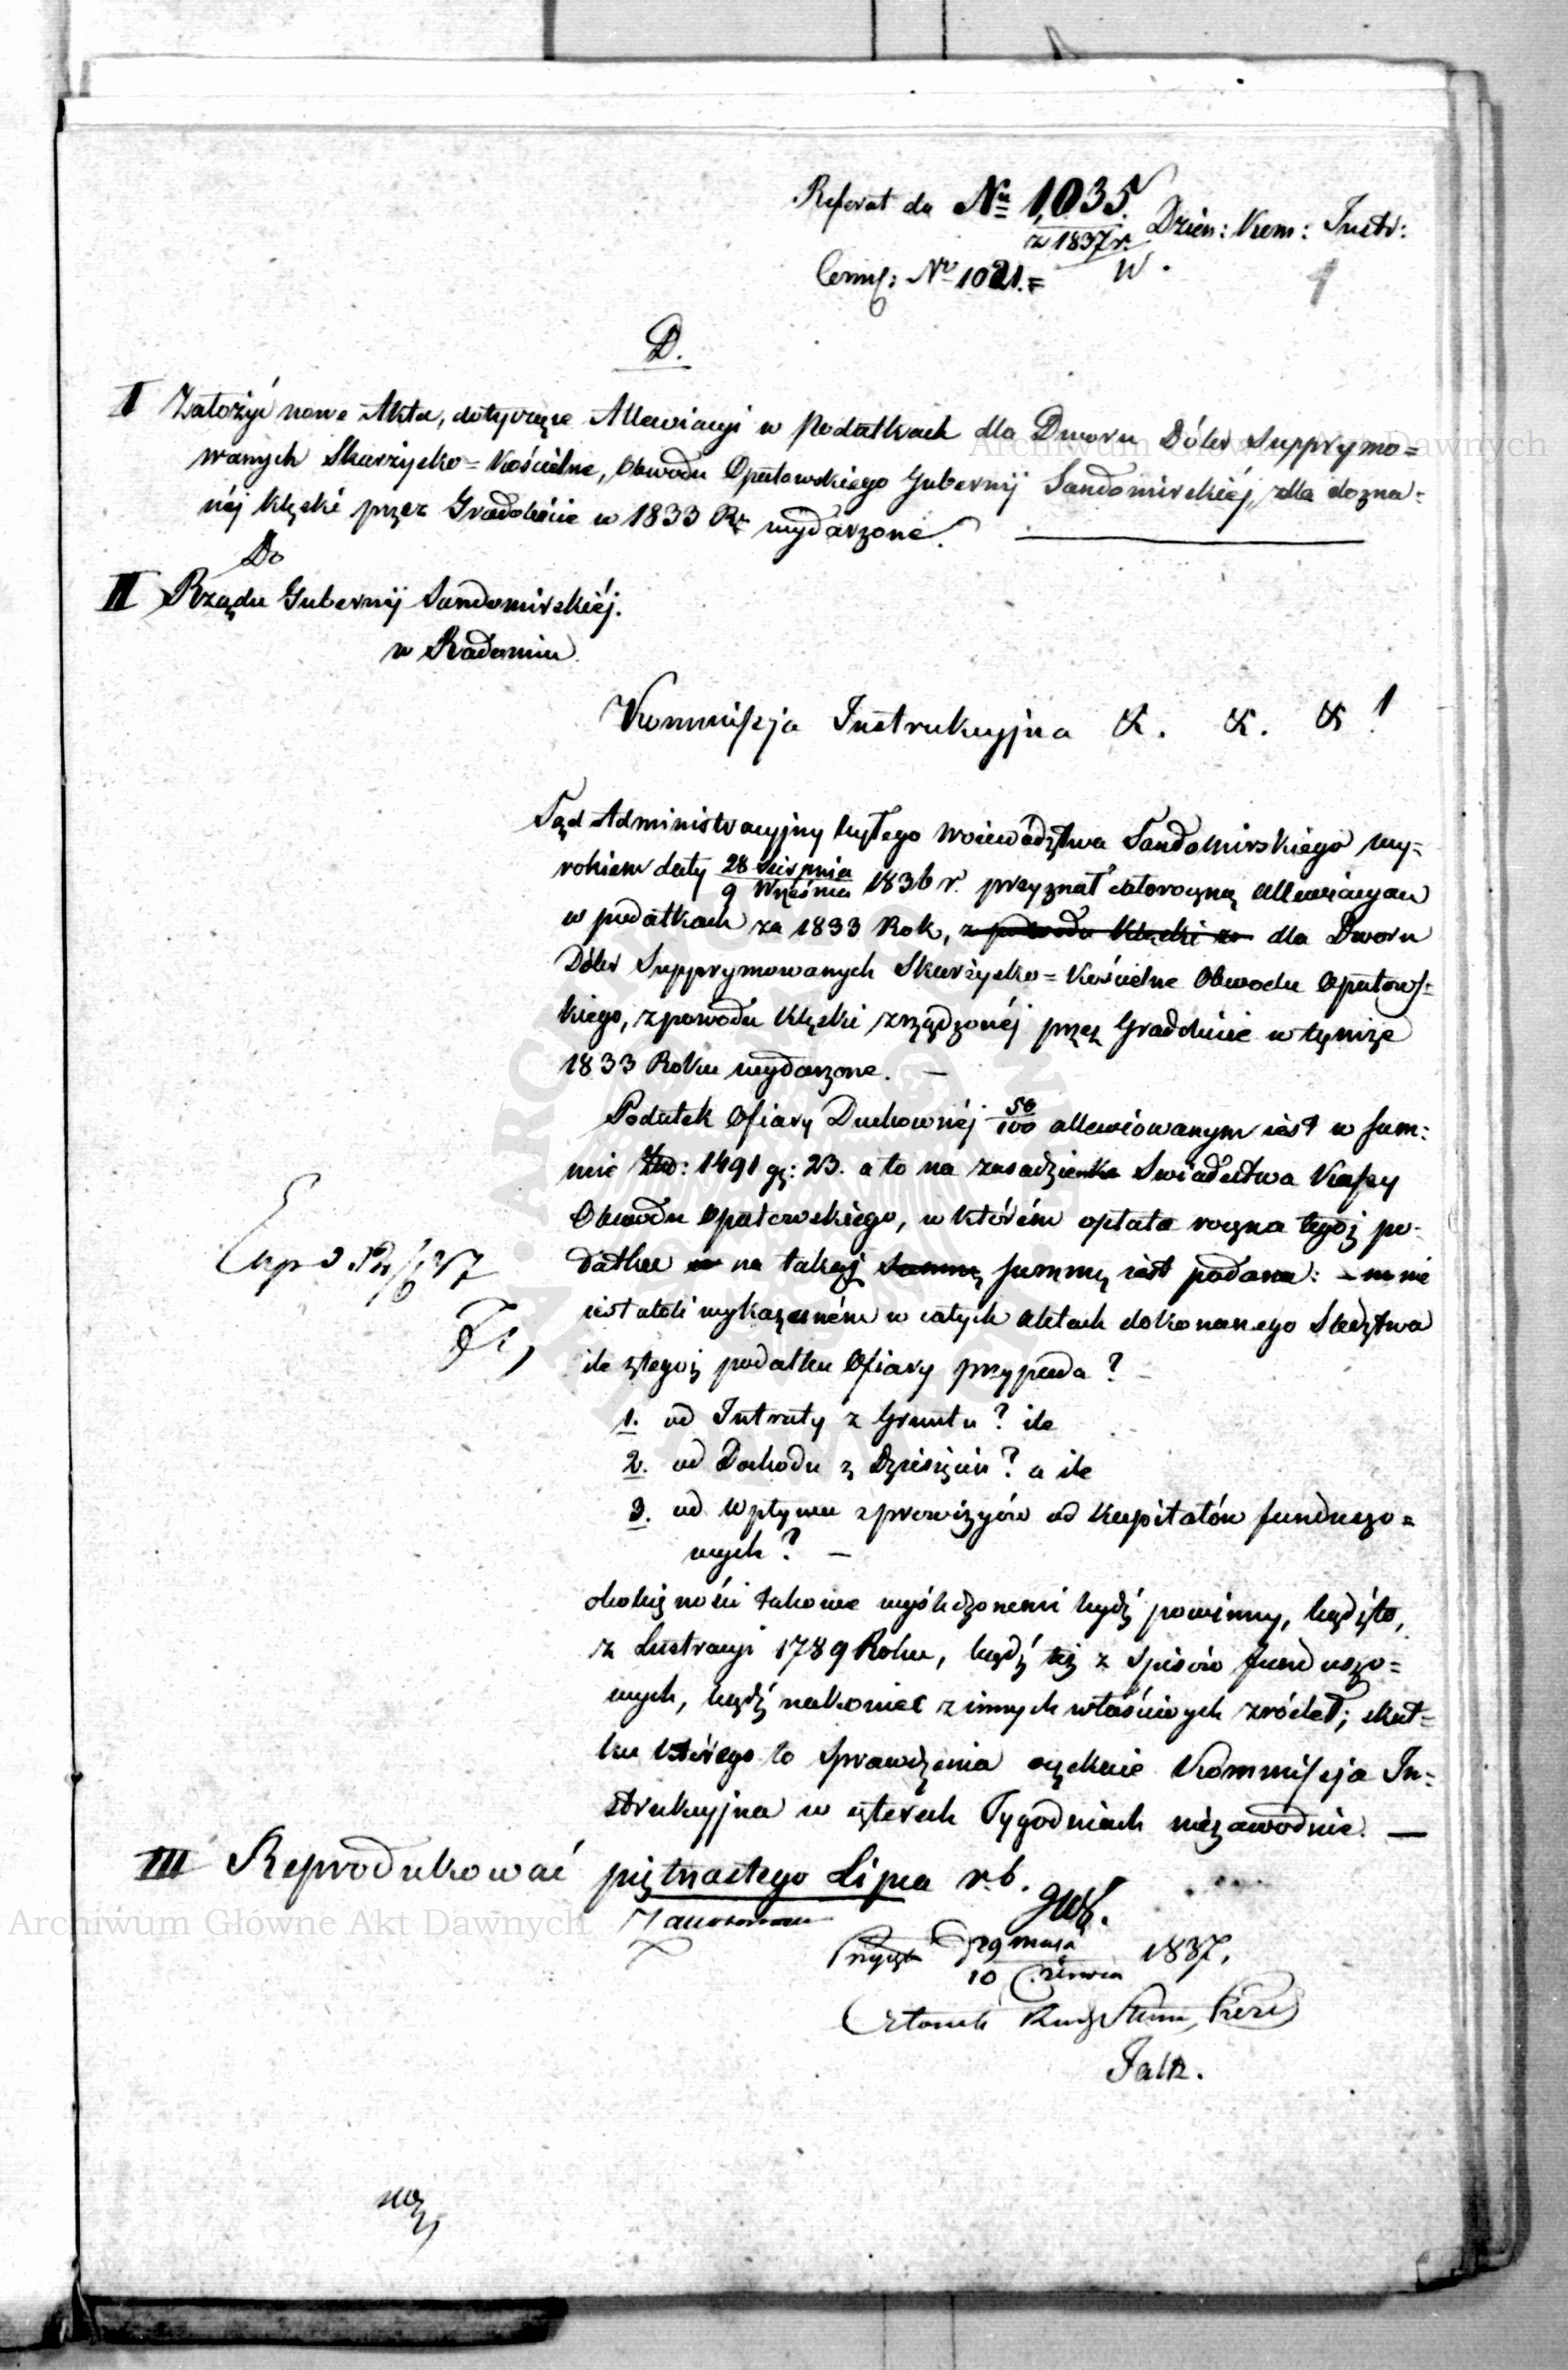 Referat do № 1,035. Dzien: Kom: Instr:
z 1837 r. W.
№ 1021.=
1
D.
I Założyć nowe Akta, dotyczące Allewiacyi w Podatkach dla Dworu Dóbr Supprymo=
wanych Skarzysko=Kościelne, Obwodu Opatowskiego Gubernij Sandomirskiéj, dla dozna=
néj klęski przez Gradobicie w 1833 R. wydarzone.
Do
II Rządu Gubernij Sandomirskiéj.
w Radomiu.
Kommissja Instrukcyjna &. &. & !
Sąd Administracyjny byłego Województwa Sandomirskiego wy=
rokiem daty 28 Sierpnia / 9 Września 1836 r. przyznał całoroczną allewiacyan
w podatkach za 1833 Rok, z powodu klęski w dla Dworu
Dóbr Supprymowanych Skarżysko=Kościelne Obwodu Opatows=
kiego, z powodu klęski zrządzonéj przez Gradobicie w tymże
1833 Roku wydarzone. —
Podatek Ofiary Duchownéj 50/100 allewiowanym jest w Sum=
mie Złp: 1491 gr: 23. a to na zasadzie Swiadectwa Kassy
Obwodu Opatowskiego, w którém opłata roczna tegoż po=
datku w na takąż Summę Summę jest podana: — nie
jest atoli wykazaném w całych aktach dokonanego Sledztwa
ile z tegoż podatku Ofiary przypada? —
1. od Intraty z Gruntu? ile
2. od Dochodu z Dziesięcin? a ile
3. od Wpływu z prowizyów od Kapitałów funduszo=
wych? —
okoliczności takowe wyśledzonemi bydź powinny, bądź to,
z Lustracyi 1789 Roku, bądź też z Spisów funduszo=
wych, bądź nakoniec z innych właściwych zródeł; skut=
ku którego to Sprawdzenia oczekuie Kommissja In=
strukcyjna w czterech Tygodniach niezawodnie. —
III Reprodukować piętnastego Lipca r. b.
Zanotowano
Przyięto D. 29 maja / 10 Czerwca 1837.
Członek Rady Stanu, Prezes
Falk.
Archiwum Główne Akt Dawnych
Archiwum Główne Akt Dawnych